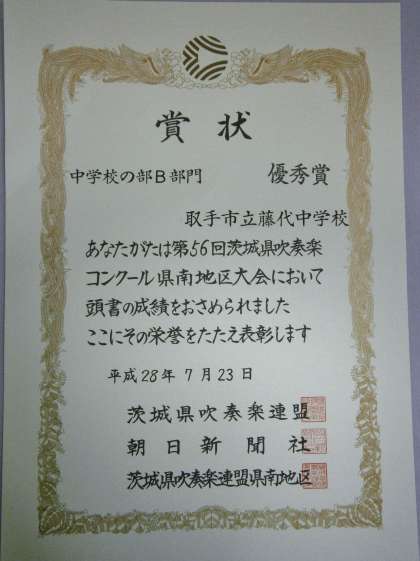 賞状
中学校の部B部門 優秀賞
取手市立藤代中学校
あなたがたは第56回茨城県吹奏楽
コンクール県南地区大会において
頭書の成績をおさめられました
ここにその栄誉をたたえ表彰します
平成28年7月23日
茨城県吹奏楽連盟
朝日新聞社
茨城県吹奏楽連盟県南地区